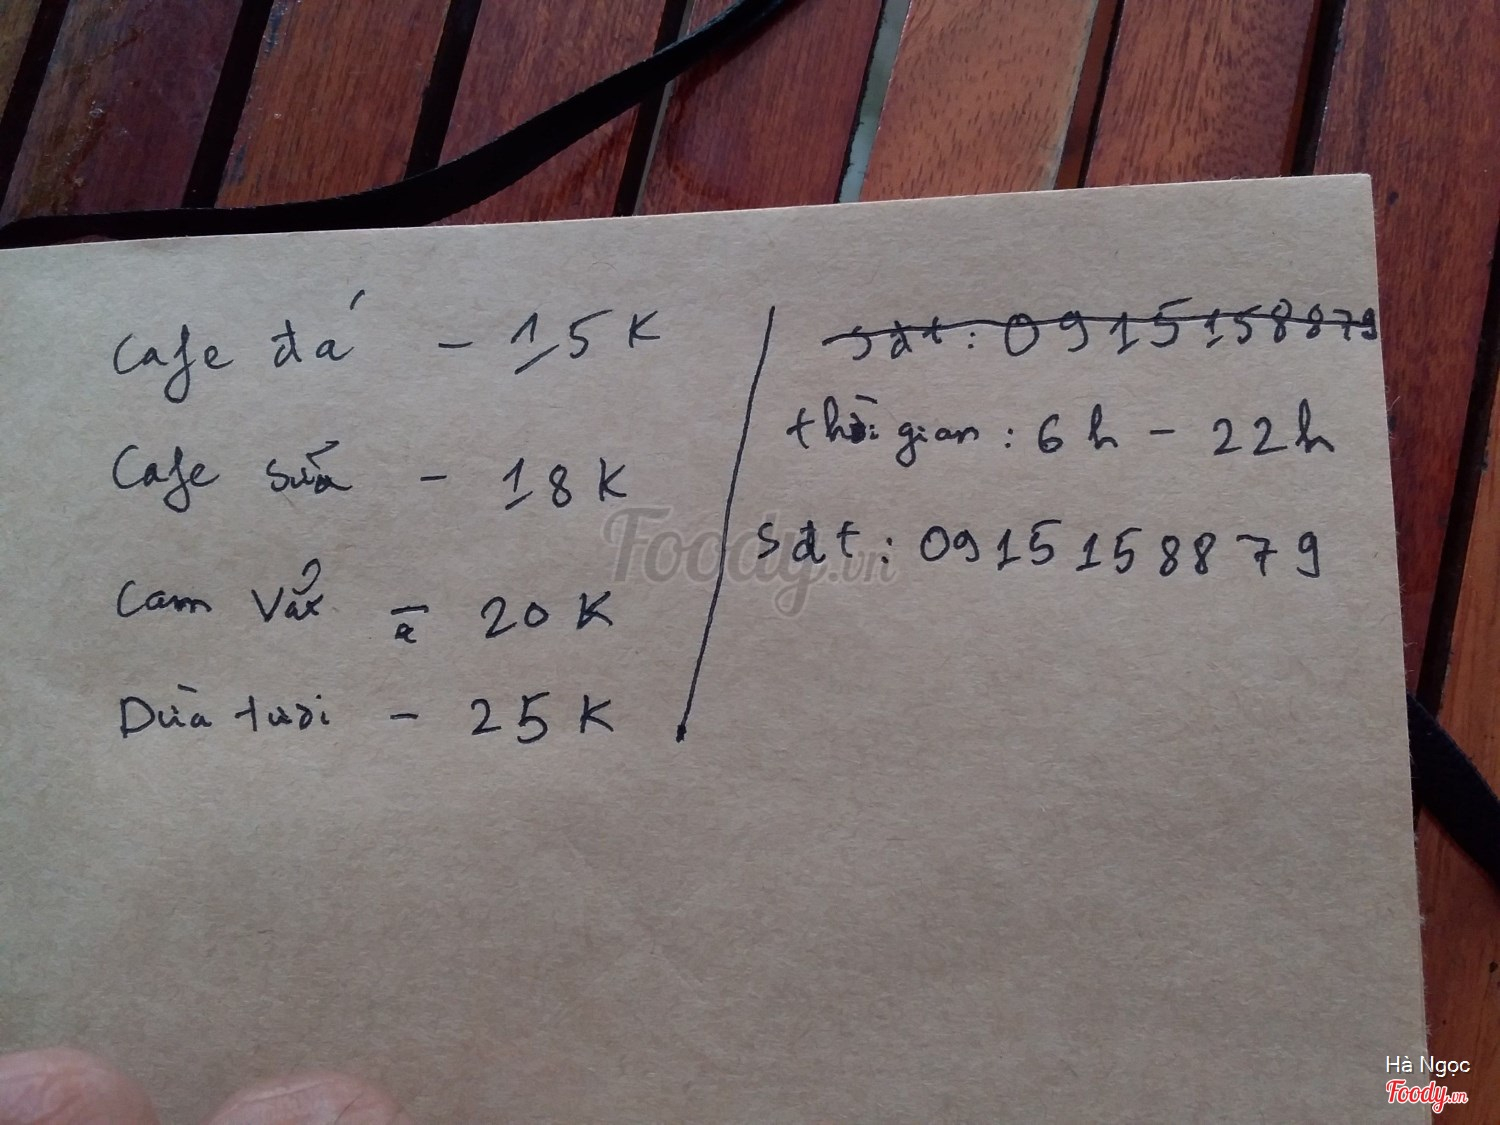 Cafe đá - 15K
Cafe sữa - 18K
Cam vắt - 20K
Dừa tươi - 25K
sđt: 0915158879
thời gian: 6h - 22h
sđt: 0915158879
Foody.vn
Hà Ngọc
Foody.vn